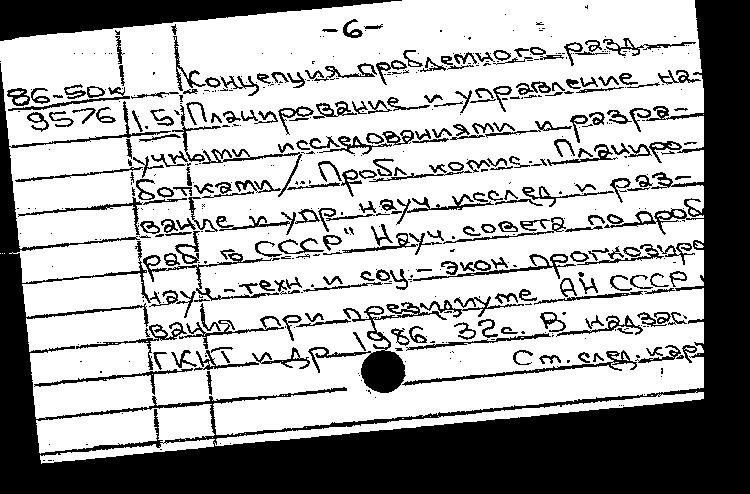 -6-
Концепция проблемного разд.
86-50к
9576 1.5) Планирование и управление на-
учными исследованиями и разра-
ботками /... Пробл. комис. „Планиро-
вание и упр. науч. исслед. и раз-
раб. в СССР" Науч. совета по проб
науч.-техн. и соц.-экон. прогнозиро
вания при президиуме АН СССР и
ГКНТ и др. 1986. 32с. В надзаг.
См. след. кар